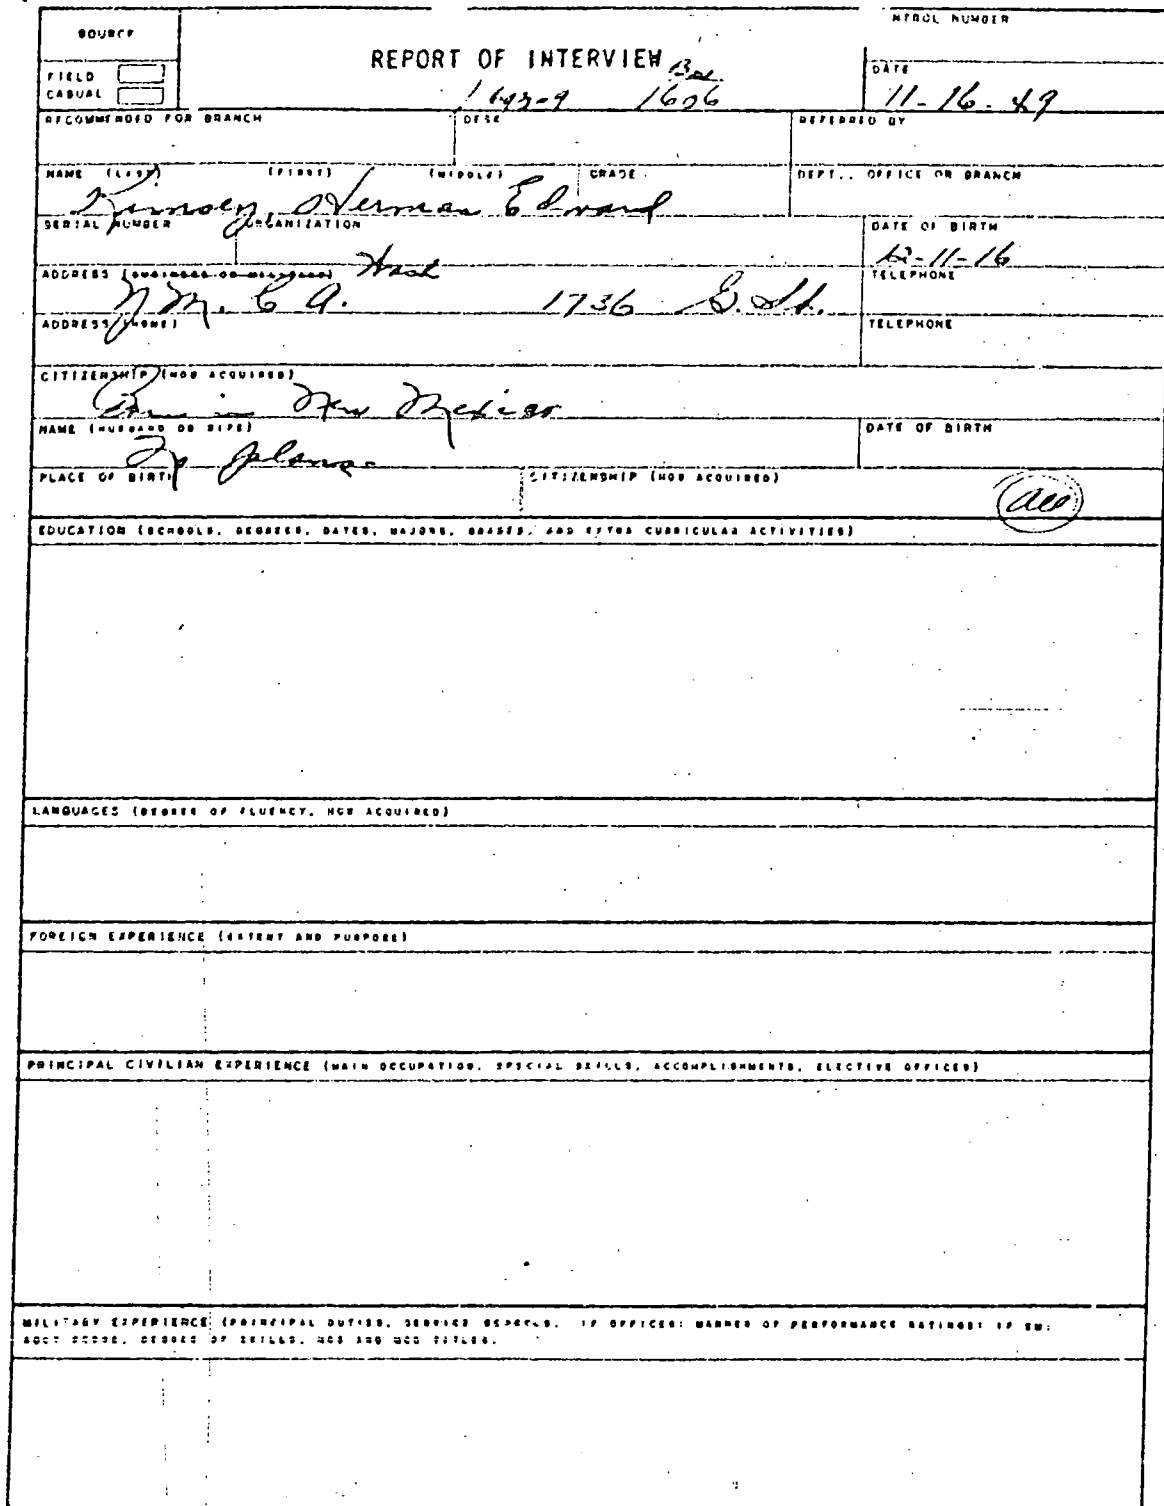 SOURCE
NTROL NUMBER
REPORT OF INTERVIEW
FIELD
CASUAL
DATE
11-16-49
1606
RECOMMENDED FOR BRANCH
DESK
REFERRED BY
NAME (LAST) (FIRST) (MIDDLE) GRADE
DEPT., OFFICE OR BRANCH
Herman Edward
SERIAL NUMBER
ORGANIZATION
DATE OF BIRTH
12-11-16
ADDRESS (BUSINESS OR MILITARY)
TELEPHONE
Y.M.C.A. 1736 G. St.
ADDRESS (HOME)
TELEPHONE
CITIZENSHIP (HOW ACQUIRED)
Born in New Mexico
NAME (HUSBAND OR WIFE)
DATE OF BIRTH
No plans
PLACE OF BIRTH
CITIZENSHIP (HOW ACQUIRED)
EDUCATION (SCHOOLS, DEGREES, DATES, MAJORS, GRADES, AND EXTRA CURRICULAR ACTIVITIES)
LANGUAGES (DEGREE OF FLUENCY, HOW ACQUIRED)
FOREIGN EXPERIENCE (EXTENT AND PURPOSE)
PRINCIPAL CIVILIAN EXPERIENCE (MAIN OCCUPATION, SPECIAL SKILLS, ACCOMPLISHMENTS, ELECTIVE OFFICES)
MILITARY EXPERIENCE (PRINCIPAL DUTIES, SERVICE SCHOOLS. IF OFFICER: MANNER OF PERFORMANCE RATINGS: IF EM:
AGCT SCORE, DEGREE OF SKILLS, MOS AND MOS TITLES.